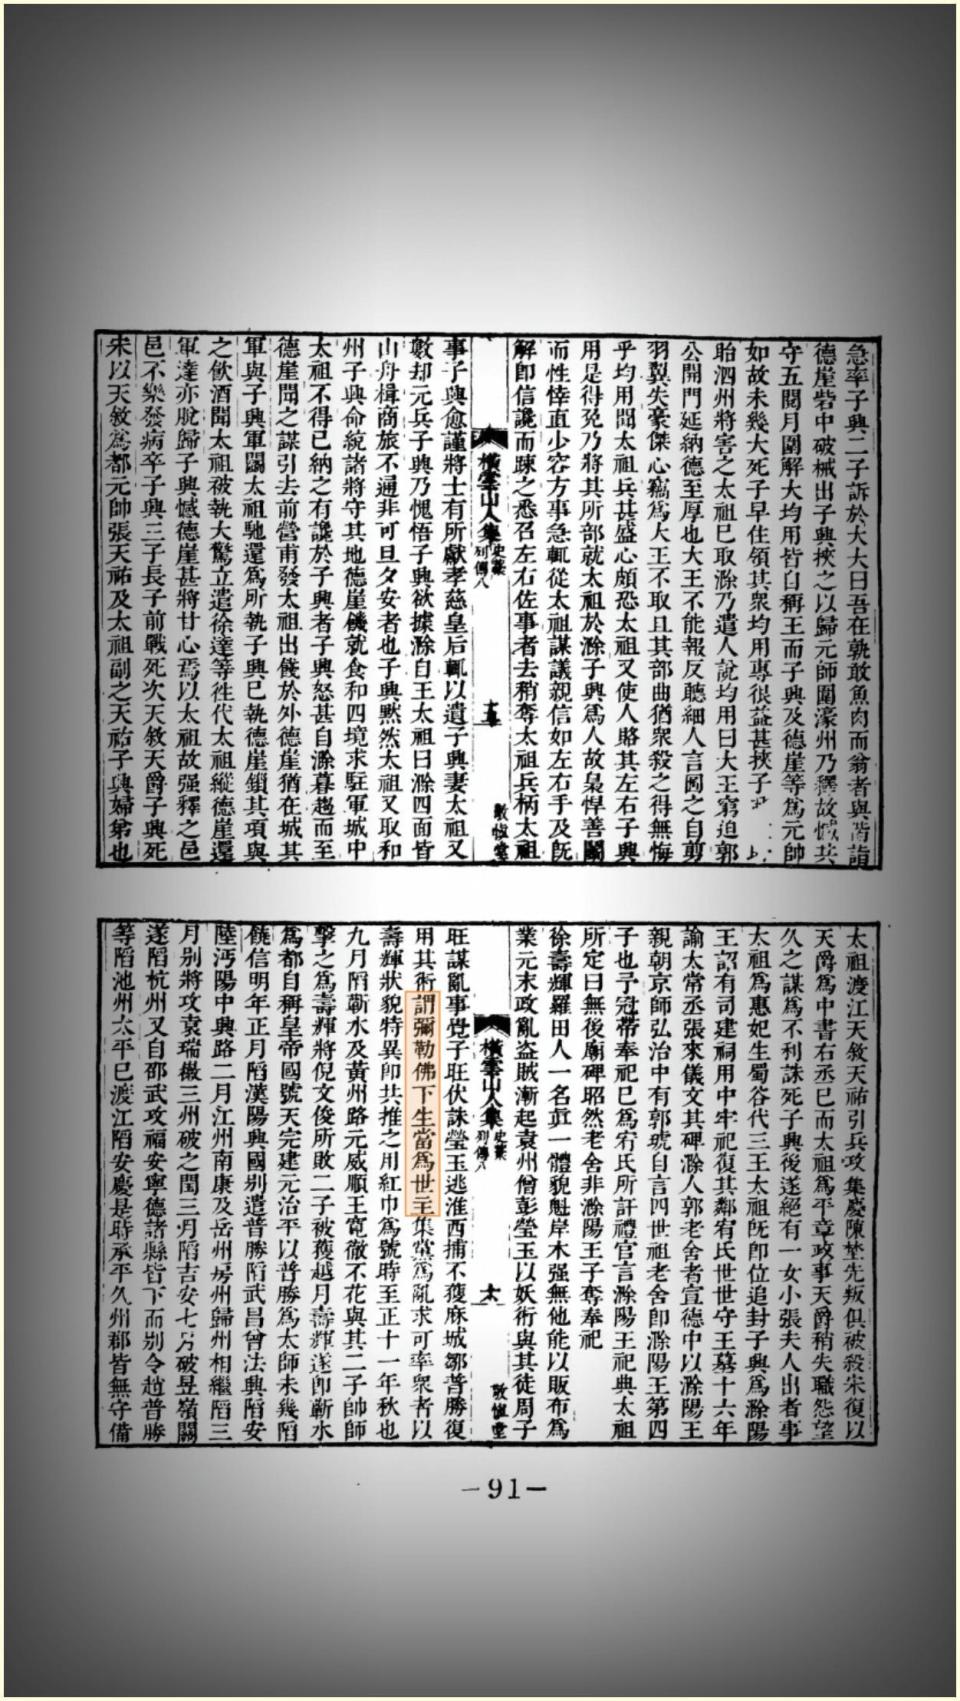 急率子興二子訴於大大曰吾在孰敢魚肉而翁者與偕詣
德崖砦中破械出子興挾之以歸元師圍濠州乃釋故憾共
守五閱月圍解大均用皆自稱王而子興及德崖等為元帥
如故未幾大死子早住領其衆均用專很益甚挾子
眙泗州將害之太祖已取滁乃遣人說均用曰大王窮迫郭
公開門延納德至厚也大王不能報反聽細人言圖之自剪
羽翼失豪傑心竊為大王不取且其部曲猶衆殺之得無悔
乎均用聞太祖兵甚盛心頗恐太祖又使人賂其左右子興
用是得免乃將其所部就太祖於滁子興為人故梟悍善鬬
而性悻直少容方事急輒從太祖謀議親信如左右手及旣
解卽信讒而疎之悉召左右佐事者去稍奪太祖兵柄太祖
橫雲山人集 史藁 列傳八 十五 敬愼堂
事子興愈謹將士有所獻孝慈皇后輒以遺子興妻太祖又
數却元兵子興乃愧悟子興欲據滁自王太祖曰滁四面皆
山舟楫商旅不通非可旦夕安者也子興黙然太祖又取和
州子興命統諸將守其地德崖饑就食和四境求駐軍城中
太祖不得已納之有讒於子興者子興怒甚自滁暮趨而至
德崖聞之謀引去前營甫發太祖出餞於外德崖猶在城其
軍與子興軍鬬太祖馳還為所執子興已執德崖鎖其項與
之飲酒聞太祖被執大驚立遣徐達等徃代太祖縱德崖還
軍達亦脫歸子興憾德崖甚將甘心焉以太祖故强釋之邑
邑不樂發病卒子興三子長子前戰死次天敘天爵子興死
宋以天敘為都元帥張天祐及太祖副之天祐子興婦弟也
太祖渡江天敘天祐引兵攻集慶陳埜先叛俱被殺宋復以
天爵為中書右丞已而太祖為平章政事天爵稍失職怨望
久之謀為不利誅死子興後遂絕有一女小張夫人出者事
太祖為惠妃生蜀谷代三王太祖旣卽位追封子興為滁陽
王詔有司建祠用中牢祀復其鄰宥氏世世守王墓十六年
諭太常丞張來儀文其碑滁人郭老舍者宣德中以滁陽王
親朝京師弘治中有郭琥自言四世祖老舍卽滁陽王第四
子也予冠帶奉祀已為宥氏所訐禮官言滁陽王祀典太祖
所定曰無後廟碑昭然老舍非滁陽王子奪奉祀
徐壽輝羅田人一名眞一體貌魁岸木强無他能以販布為
業元末政亂盗賊漸起袁州僧彭瑩玉以妖術與其徒周子
橫雲山人集 史藁 列傳八 十六 敬愼堂
旺謀亂事覺子旺伏誅瑩玉逃淮西捕不獲麻城鄒普勝復
用其術謂彌勒佛下生當為世主集黨為亂求可率衆者以
壽輝狀貌特異卽共推之用紅巾為號時至正十一年秋也
九月陷蘄水及黃州路元威順王寬徹不花與其二子帥師
擊之為壽輝將倪文俊所敗二子被獲越月壽輝遂卽蘄水
為都自稱皇帝國號天完建元治平以普勝為太師未幾陷
饒信明年正月陷漢陽興國別遣普勝陷武昌曾法興陷安
陸沔陽中興路二月江州南康及岳州房州歸州相繼陷三
月別將攻袁瑞徽三州破之閏三月陷吉安七月破昱嶺關
遂陷杭州又自邵武攻福安寧德諸縣皆下而別令趙普勝
等陷池州太平已渡江陷安慶是時承平久州郡皆無守備
—91—